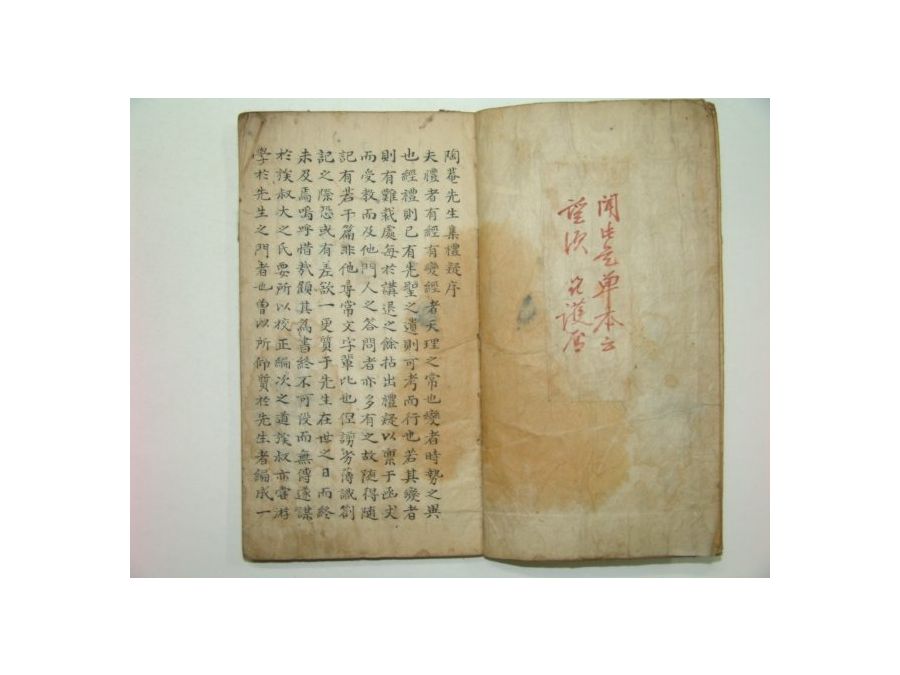 聞此是單本云
望須 兄護層
陶菴先生集禮疑序
夫禮者有經有變經者天理之常也變者時勢之異
也經禮則已有先聖之遺則可考而行也若其變者
則有難裁處每於講退之餘拈出禮疑以稟于函丈
而受教而及他門人之答問者亦多有之故隨得隨
記有若干篇非他尋常文字輩比也但謭劣薄識劄
記之際恐或有差欲一更質于先生在世之日而終
未及焉嗚呼惜哉顧其爲書終不可設而無傳遂謀
於族叔大之氏要所以校正編次之道族叔亦嘗游
學於先生之門者也曾以所仰質於先生者編成一